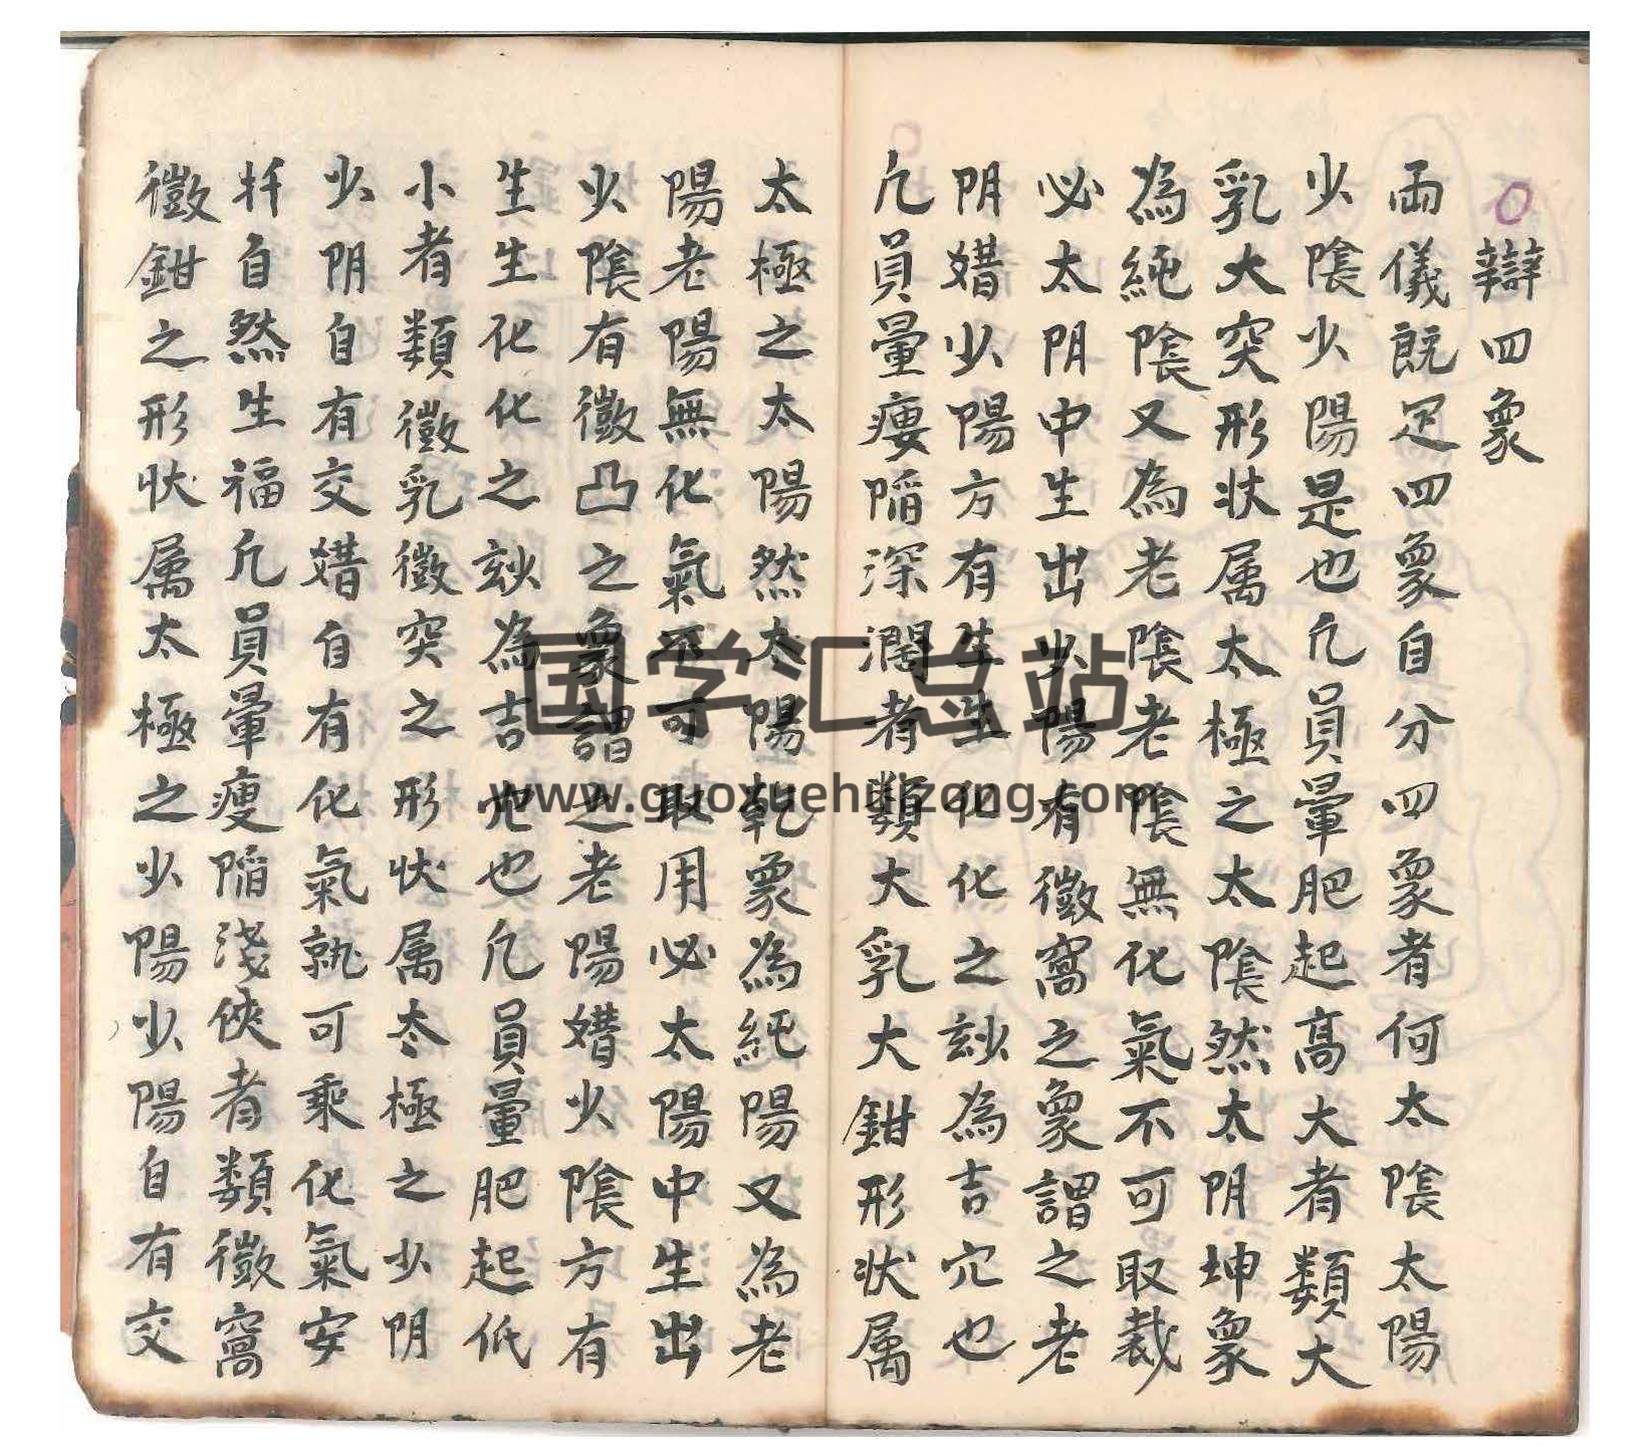 辯四象
兩儀既足四象自分四象者何太陰太陽
少陰少陽是也凢員暈肥起高大者類大
乳大突形状属太極之太陰然太阴坤象
為純陰又為老陰老陰無化氣不可取裁
必太阴中生出少陽有微窩之象謂之老
阴㛫少陽方有生生化化之玅為吉穴也
凢員暈瘦陷深濶者類大乳大鉗形状属
太極之太陽然太陽乾象為純陽又為老
陽老陽無化氣不可取用必太陽中生出
少陰有微凸之象謂之老陽㛫少陰方有
生生化化之玅為吉也凢員暈肥起低
小者類微乳微突之形状属太極之少阴
少阴自有交㛫自有化氣孰可乘化氣安
扦自然生福凢員暈瘦陷淺俠者類微窩
微鉗之形状属太極之少陽少陽自有交
国学汇总站
www.guoxuehuizong.com